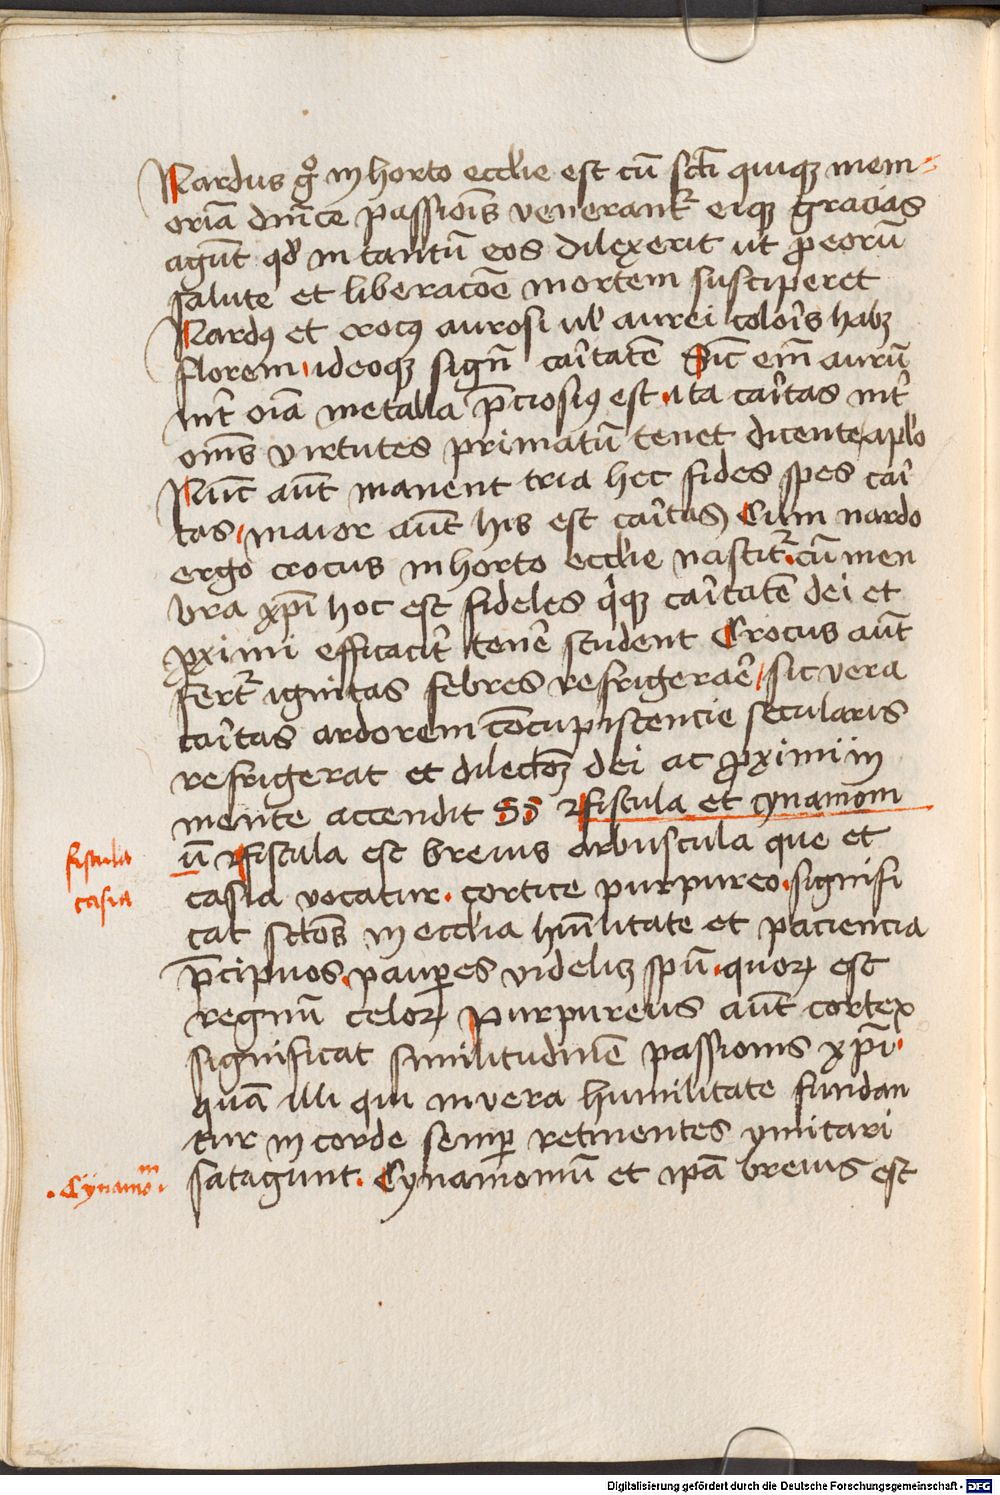 Nardus g° in horto eccl'ie est cū sc̄ti quiqꝫ mem⸗
oriā dn̄ice passiōis venerant᷑ eiqꝫ gracias
agūt qd̓ in tantū eos dilexerit ut ꝓ eorū
salute et liberacōe mortem susciperet
Nardꝰ et crocꝰ aurosi ul̓ aurei coloīs habꝫ
florem ideoqꝫ sign̄ caı̓tatē Sic em̄ aurū
int̓ oīa metalla p̄ciosiꝰ est ita caı̓tas int̓
om̄s virtutes primatū tenet dicente apl̓o
Nūc aūt manent tria hec fides spes caı̓
tas maior aūt his est caı̓tas Cum nardo
ergo crocus in horto eccl'ie nascit᷑ cū mem
bra xp̄i hoc est fideles qiqꝫ caı̓tatē dei et
ꝓximi efficacit̓ tenē student Crocus aūt
fert᷑ ignitas febres refrigeraē sic vera
caı̓tas ardorem cōcupiscencie secularis
refrigerat et dilectōꝫ dei ac ꝓximi in
mente accendit Sꝫ ⁊ fistula et cynamom
ū ⁊ fistula est brevis arbuscula que et
casia vocatur cortice purpureo signifi
cat sctōs in eccl'ia hūilitate et paciencia
p̄cipuos pauꝑes videliꝫ spū quoꝝ est
regnū celoꝝ Purpureus aūt cortex
significat similitudinē passionis xp̄i
quā illi qui in vera humilitate fundan
tur in corde semꝑ retinentes ymitari
satagunt. Cynamomū et ip̄a brevis est
fistula
casia
. Cynamo m .
Digitalisierung gefördert durch die Deutsche Forschungsgemeinschaft - DFG